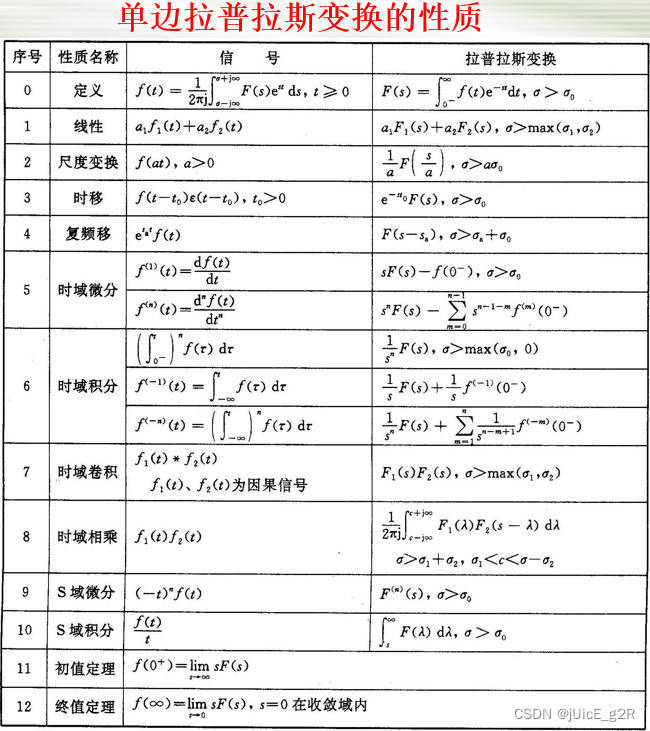 单边拉普拉斯变换的性质
序号 性质名称 信 号 拉普拉斯变换
0 定义 f(t) = \frac{1}{2πj}\int_{σ-j∞}^{σ+j∞} F(s)e^{st} ds, t ≥ 0 F(s) = \int_{0^-}^{∞} f(t)e^{-st}dt, σ > σ_0
1 线性 a_1f_1(t)+a_2f_2(t) a_1F_1(s)+a_2F_2(s), σ>max(σ_1,σ_2)
2 尺度变换 f(at), a>0 \frac{1}{a}F\left(\frac{s}{a}\right), σ>aσ_0
3 时移 f(t-t_0)ε(t-t_0), t_0>0 e^{-st_0}F(s), σ>σ_0
4 复频移 e^{s_a t}f(t) F(s-s_a), σ>σ_a+σ_0
5 时域微分 f^{(1)}(t)=\frac{df(t)}{dt} sF(s)-f(0^-), σ>σ_0
f^{(n)}(t)=\frac{d^n f(t)}{dt^n} s^nF(s) - \sum_{m=0}^{n-1} s^{n-1-m}f^{(m)}(0^-)
6 时域积分 \left(\int_{0^-}^{t}\right)^n f(τ) dτ \frac{1}{s^n}F(s), σ>max(σ_0, 0)
f^{(-1)}(t)=\int_{-∞}^{t} f(τ) dτ \frac{1}{s}F(s)+\frac{1}{s}f^{(-1)}(0^-)
f^{(-n)}(t)=\left(\int_{-∞}^{t}\right)^n f(τ) dτ \frac{1}{s^n}F(s) + \sum_{m=1}^{n}\frac{1}{s^{n-m+1}}f^{(-m)}(0^-)
7 时域卷积 f_1(t) * f_2(t) F_1(s)F_2(s), σ>max(σ_1,σ_2)
f_1(t)、f_2(t)为因果信号
8 时域相乘 f_1(t)f_2(t) \frac{1}{2πj}\int_{c-j∞}^{c+j∞} F_1(λ)F_2(s-λ) dλ
σ>σ_1+σ_2, σ_1<c<σ-σ_2
9 S域微分 (-t)^n f(t) F^{(n)}(s), σ>σ_0
10 S域积分 \frac{f(t)}{t} \int_{s}^{∞} F(λ) dλ, σ > σ_0
11 初值定理 f(0^+)=\lim_{s→∞} sF(s)
12 终值定理 f(∞)=\lim_{s→0} sF(s), s=0在收敛域内
CSDN @jUicE_g2R